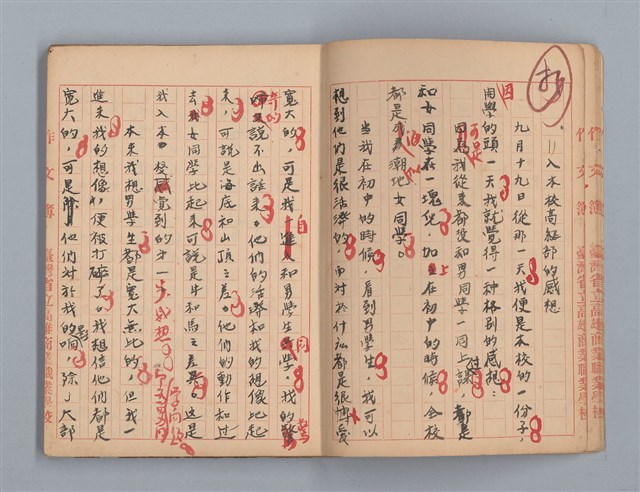 入本校高級部的感想
九月十九日從那一天我便是本校的一份子，
開學的頭一天我就覺得一種格別的感想：
因為我從來都沒和男同學一同上課，都是
和女同學在一塊兒，加上在初中的時候，全校
都是女同學。
當我在初中的時候，看到男學生，我可以
想到他們是很活潑的，而對於什麼都是很博愛
寬大的，可是我一進入和男學生同學，我的驚
說不出誰來。他們的活潑和我的想像比起
來，可說是海底和山頂之差。他們的動作和過
去我女同學比起來可說是牛和馬之差異。這是
我入本校感覺到的第一步感想。
本來我想男學生都是寬大無比的，但我一
進來我的想像，便被打碎了。我想信他們都是
寬大的，可是他們對於我的，除了大部
作文簿
臺灣省立高雄商業職業學校
作文簿
臺灣省立高雄商業職業學校